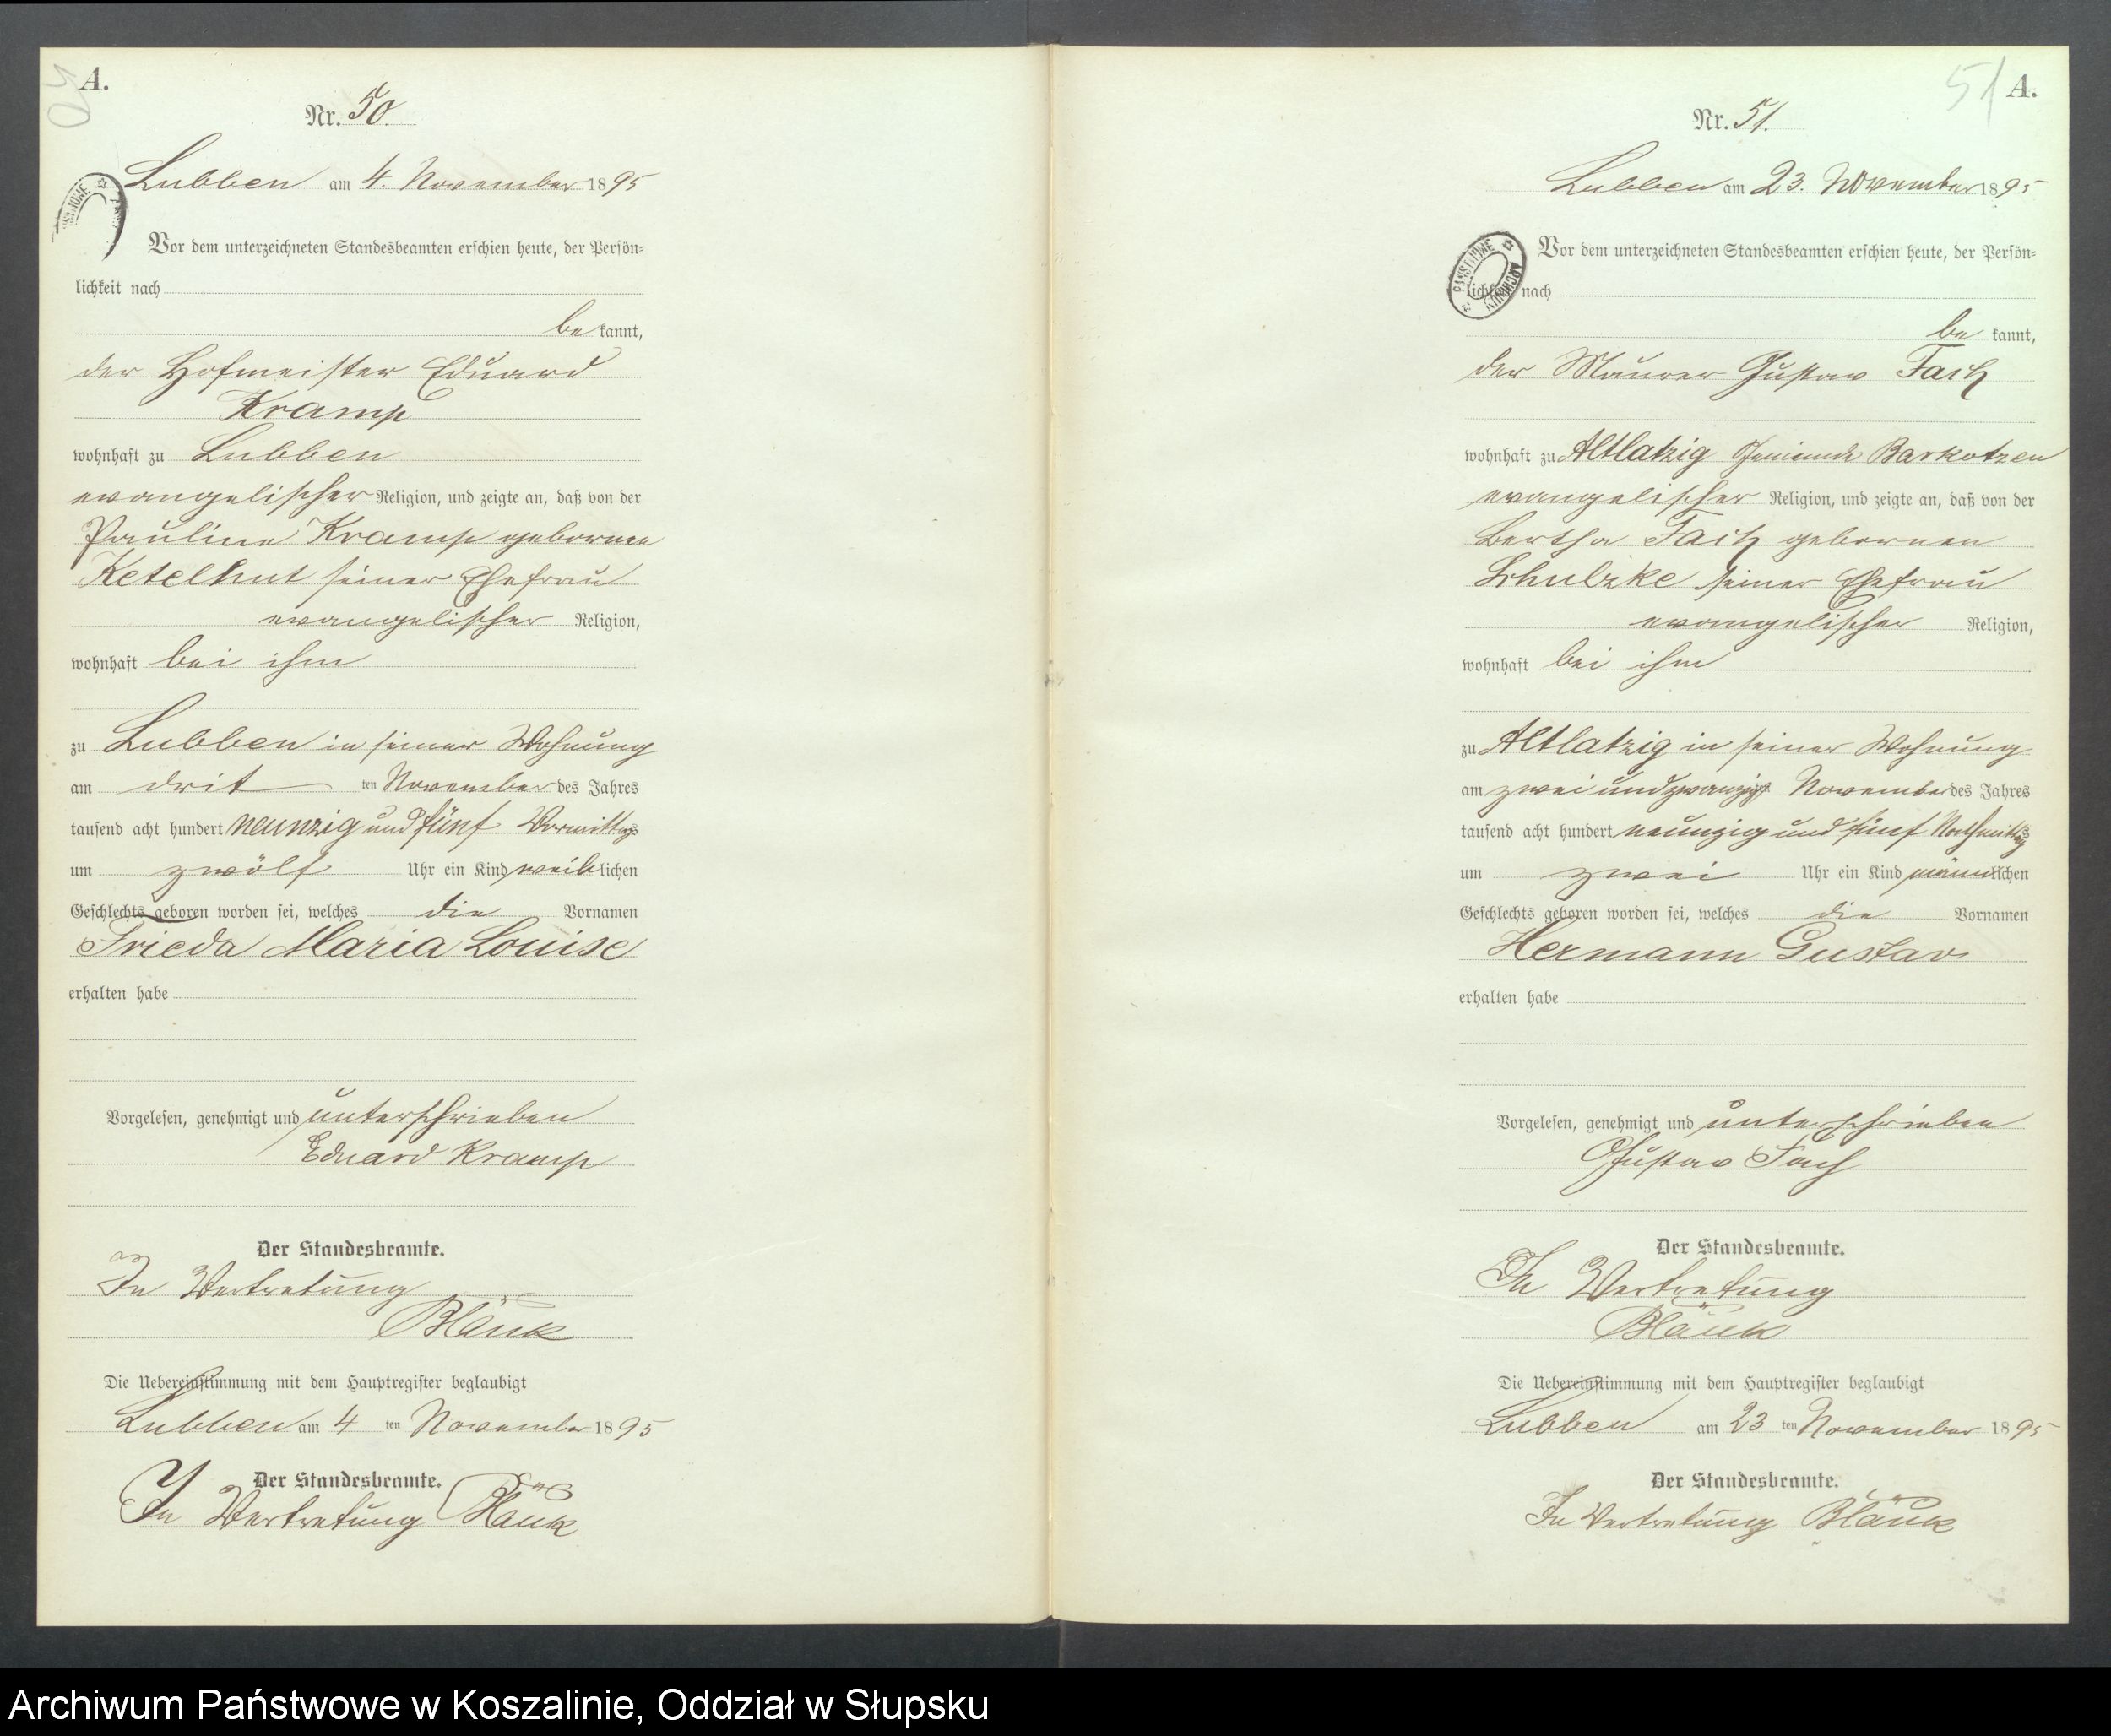 A.
50
Nr. 50.
Lubben am 4. November 1895
Vor dem unterzeichneten Standesbeamten erschien heute, der Persön=
lichkeit nach
be kannt,
der Hofmeister Eduard
Kramp
wohnhaft zu Lubben
evangelischer Religion, und zeigte an, daß von der
Pauline Kramp gebornen
Ketelhut seiner Ehefrau
evangelischer Religion,
wohnhaft bei ihm
zu Lubben in seiner Wohnung
am drit ten November des Jahres
tausend acht hundert neunzig und fünf Vormittags
um zwölf Uhr ein Kind weiblichen
Geschlechts geboren worden sei, welches die Vornamen
Frieda Maria Louise
erhalten habe
Vorgelesen, genehmigt und unterschrieben
Eduard Kramp
Der Standesbeamte.
In Vertretung
Bläuk
Die Uebereinstimmung mit dem Hauptregister beglaubigt
Lubben am 4 ten November 1895
Der Standesbeamte.
In Vertretung Bläuk
51 A.
Nr. 51.
Lubben am 23. November 1895
ARCHIWUM PAŃSTWOWE
Vor dem unterzeichneten Standesbeamten erschien heute, der Persön=
lichkeit nach
be kannt,
der Maurer Gustav Fach
wohnhaft zu Altlatzig Gemeinde Barkotzen
evangelischer Religion, und zeigte an, daß von der
Bertha Fach gebornen
Schulzke seiner Ehefrau
evangelischer Religion,
wohnhaft bei ihm
zu Altlatzig in seiner Wohnung
am zwei und zwanzigst November des Jahres
tausend acht hundert neunzig und fünf Nachmittags
um zwei Uhr ein Kind männlichen
Geschlechts geboren worden sei, welches die Vornamen
Hermann Gustav
erhalten habe
Vorgelesen, genehmigt und unterschrieben
Gustav Fach
Der Standesbeamte.
In Vertretung
Bläuk
Die Uebereinstimmung mit dem Hauptregister beglaubigt
Lubben am 23 ten November 1895
Der Standesbeamte.
In Vertretung Bläuk
Archiwum Państwowe w Koszalinie, Oddział w Słupsku